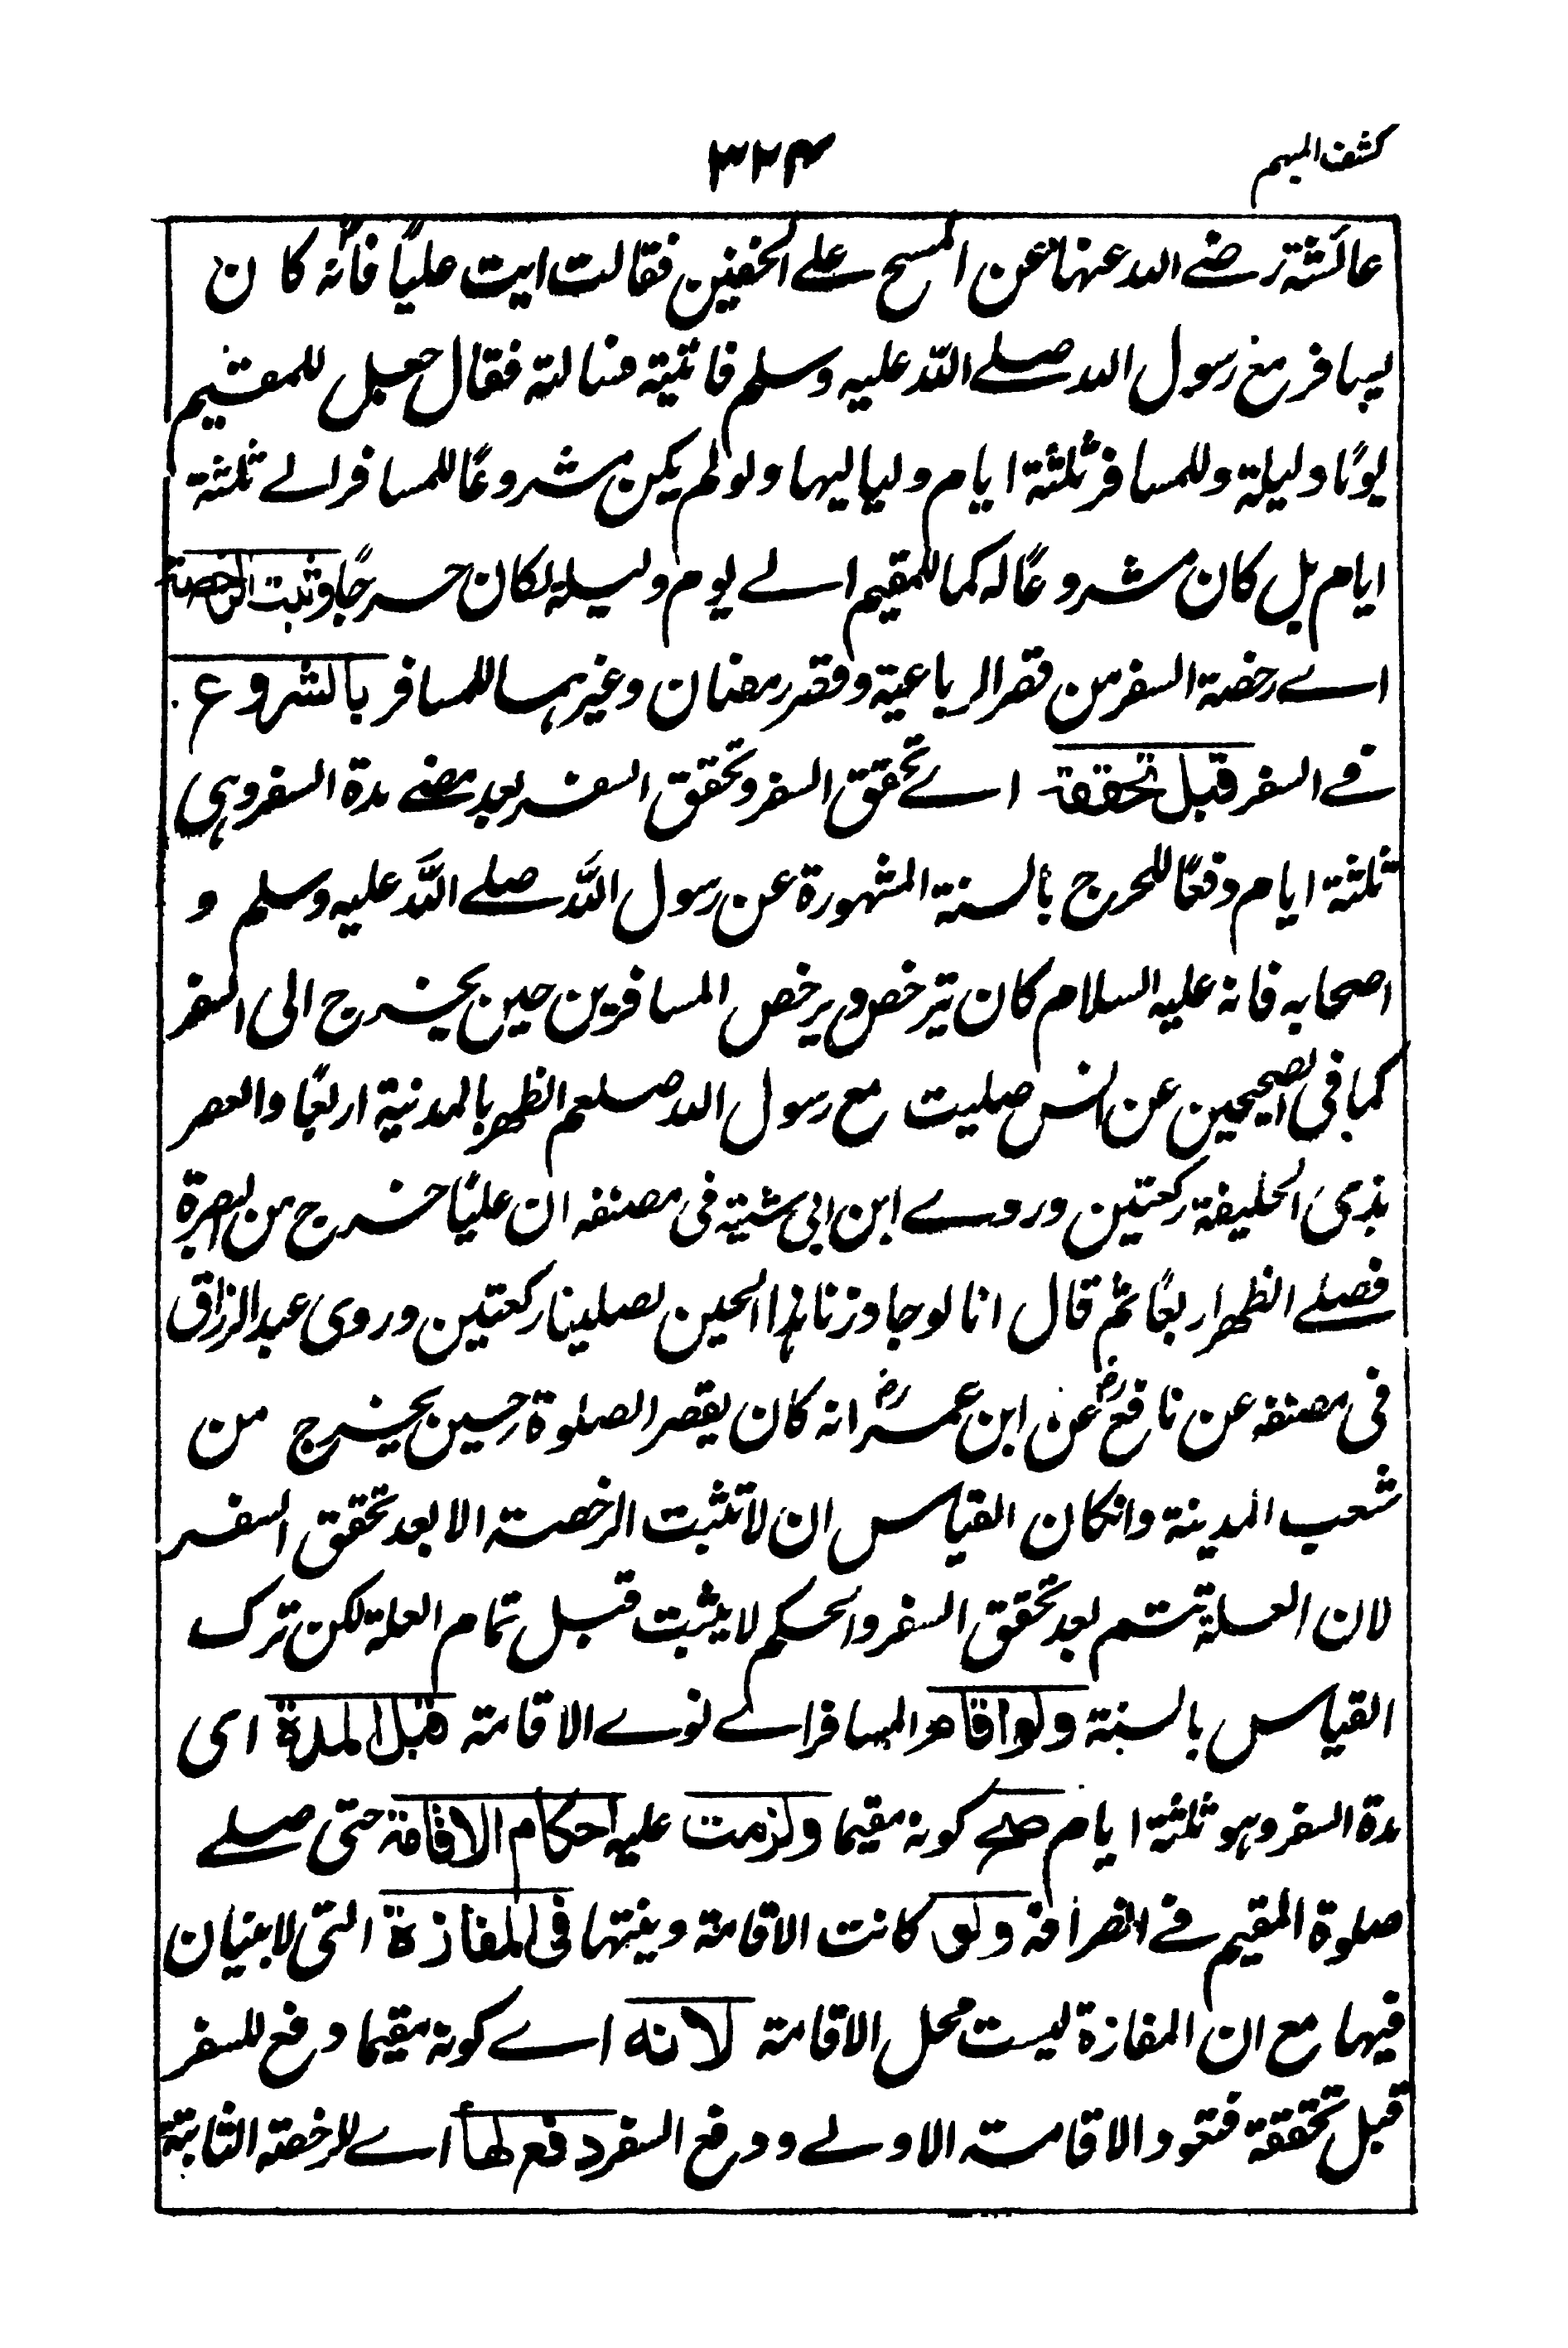 كشف المبهم
٣٢۴
عائشة رضے الله عنها عن المسح علے الخفين فقالت ايت عليًا فانّه كان
يسافر مع رسول الله صلے اللّه عليه وسلم فاتيته فسالته فقال جعل للمقيم
يومًا وليلة وللمسافر ثلثة ايام ولياليها ولو لم يكن مشروعًا للمسافر الے ثلثة
ايام بل كان مشروعًا له كما للمقيم الے يوم وليلة لكان حرجًا وتثبت الرخصة
اے رخصة السفر من قصر الرباعية وفطر رمضان وغيرهما للمسافر بالشروع
فے السفر قبل تحققه اے تحقق السفر وتحقق السفر بعد مضے مدة السفر وهى
ثلثة ايام دفعًا للحرج بالسنة المشهورة عن رسول اللّه صلے اللّه عليه وسلم و
اصحابه فانه عليه السلام كان يترخص ويرخص المسافرين حين يخرج الى السفر
كما فى الصحيحين عن انس صليت مع رسول الله صلعم الظهر بالمدينة اربعًا والعصر
بذى الحليفة ركعتين وروے ابن ابى شيبة فى مصنفه ان عليًا خرج من البصرة
فصلے الظهر اربعًا ثم قال انا لو جاوزنا هذا الحين لصلينا ركعتين وروى عبد الرزاق
فى مصنفه عن نافعؓ عن ابن عمرؓ انه كان يقصر الصلوة حين يخرج من
شعب المدينة وانكان القياس ان لا تثبت الرخصة الا بعد تحقق السفر
لان العلة تتم بعد تحقق السفر والحكم لا يثبت قبل تمام العلة لكن ترك
القياس بالسنة ولو اقام المسافر اے نوے الاقامة قبل المدة اى
مدة السفر وهو ثلثة ايام صح كونه مقيما ولزمت عليه احكام الاقامة حتى صلے
صلوة المقيم فے انصرافه ولو كانت الاقامة ونيتها فى المفازة التى لا بنيان
فيها مع ان المفازة ليست محل الاقامة لانه اے كونه مقيما دفع للسفر
قبل تحققه فتعود الاقامة الاولے ودفع السفر دفع لها اے لرخصته الثابتة